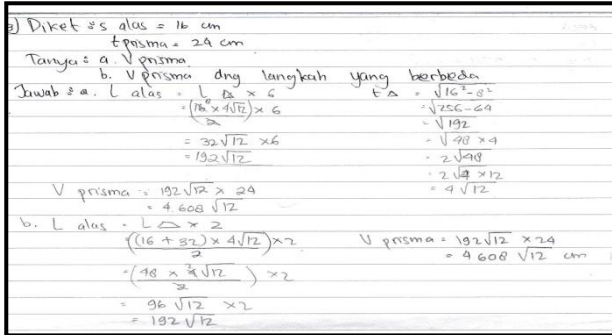 3) Diket : s alas = 16 cm
t prisma = 24 cm
Tanya : a. V prisma.
b. V prisma dng langkah yang berbeda
Jawab : a. L alas = L △ × 6
= (16 × 4√12 / 2) × 6
= 32√12 × 6
= 192√12
t △ = √16² - 8²
= √256 - 64
= √192
= √48 × 4
= 2√48
= 2√4 × 12
= 4√12
V prisma = 192√12 × 24
= 4.608 √12
b. L alas = L ⏢ × 2
= ((16 + 32) × 4√12 / 2) × 2
= (48 × 4√12 / 2) × 2
= 96 √12 × 2
= 192 √12
V prisma = 192√12 × 24
= 4608 √12 cm